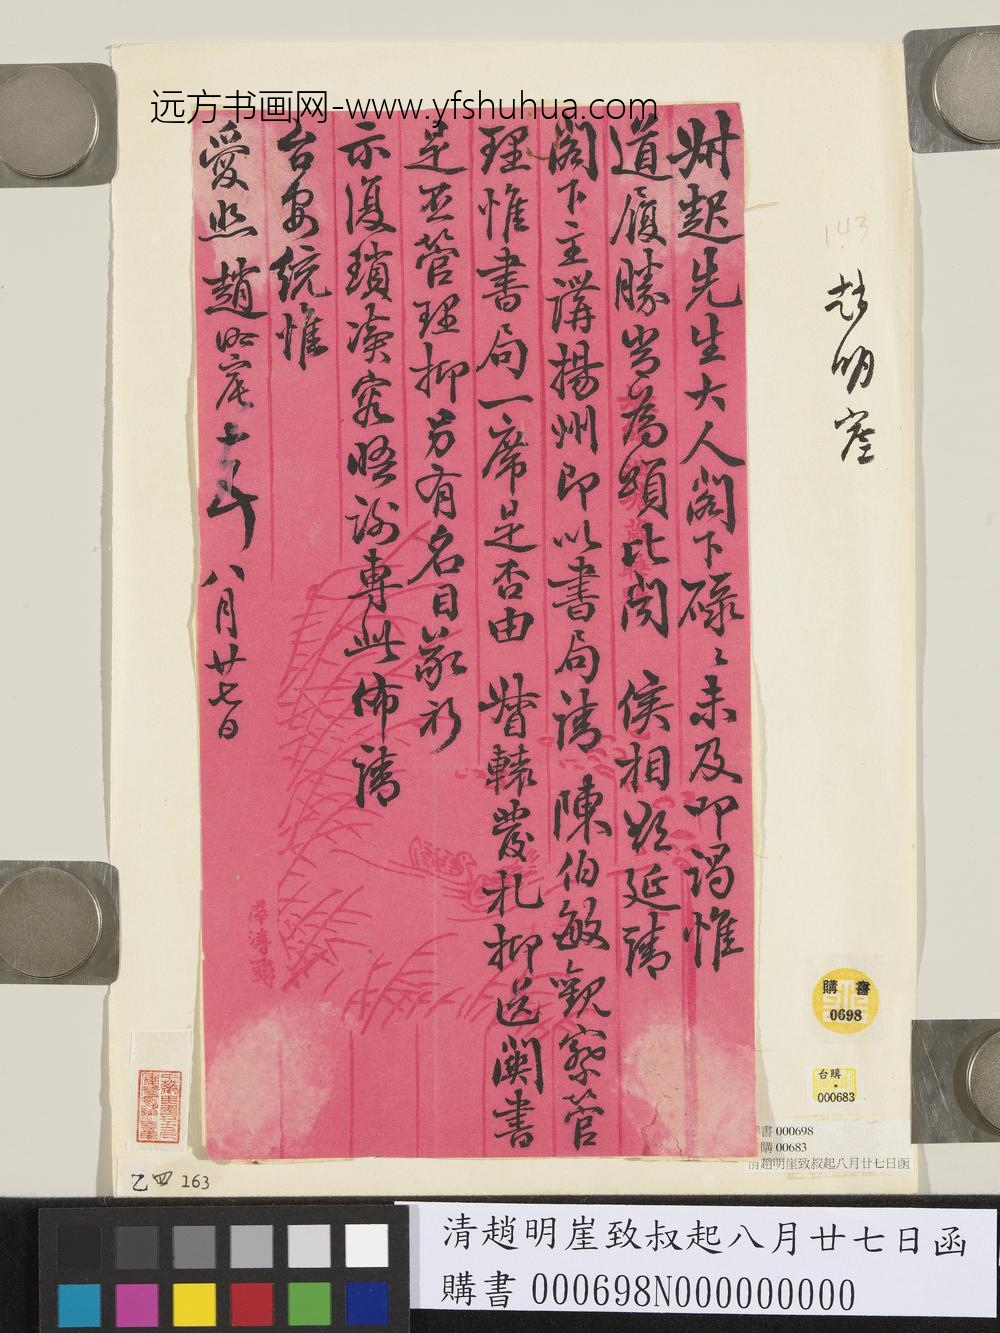 远方书画网-www.yfshuhua.com
尗起先生大人閣下碌〻未及叩謁惟
道履勝常為頌比聞 侯相欲延請
閣下主講揚州即以書局請 陳伯敏觀察管
理惟書局一席是否由 督轅發札抑送關書
是並管理抑另有名目敬祈
示復瑣凟容晤謝專此佈請
台安統惟
愛照 趙
八月廿七日
143
趙明崖
薛濤
購書
0698
台購
000683
書 000698
購 00683
清趙明崖致叔起八月廿七日函
乙四 163
清趙明崖致叔起八月廿七日函
購書 000698N000000000